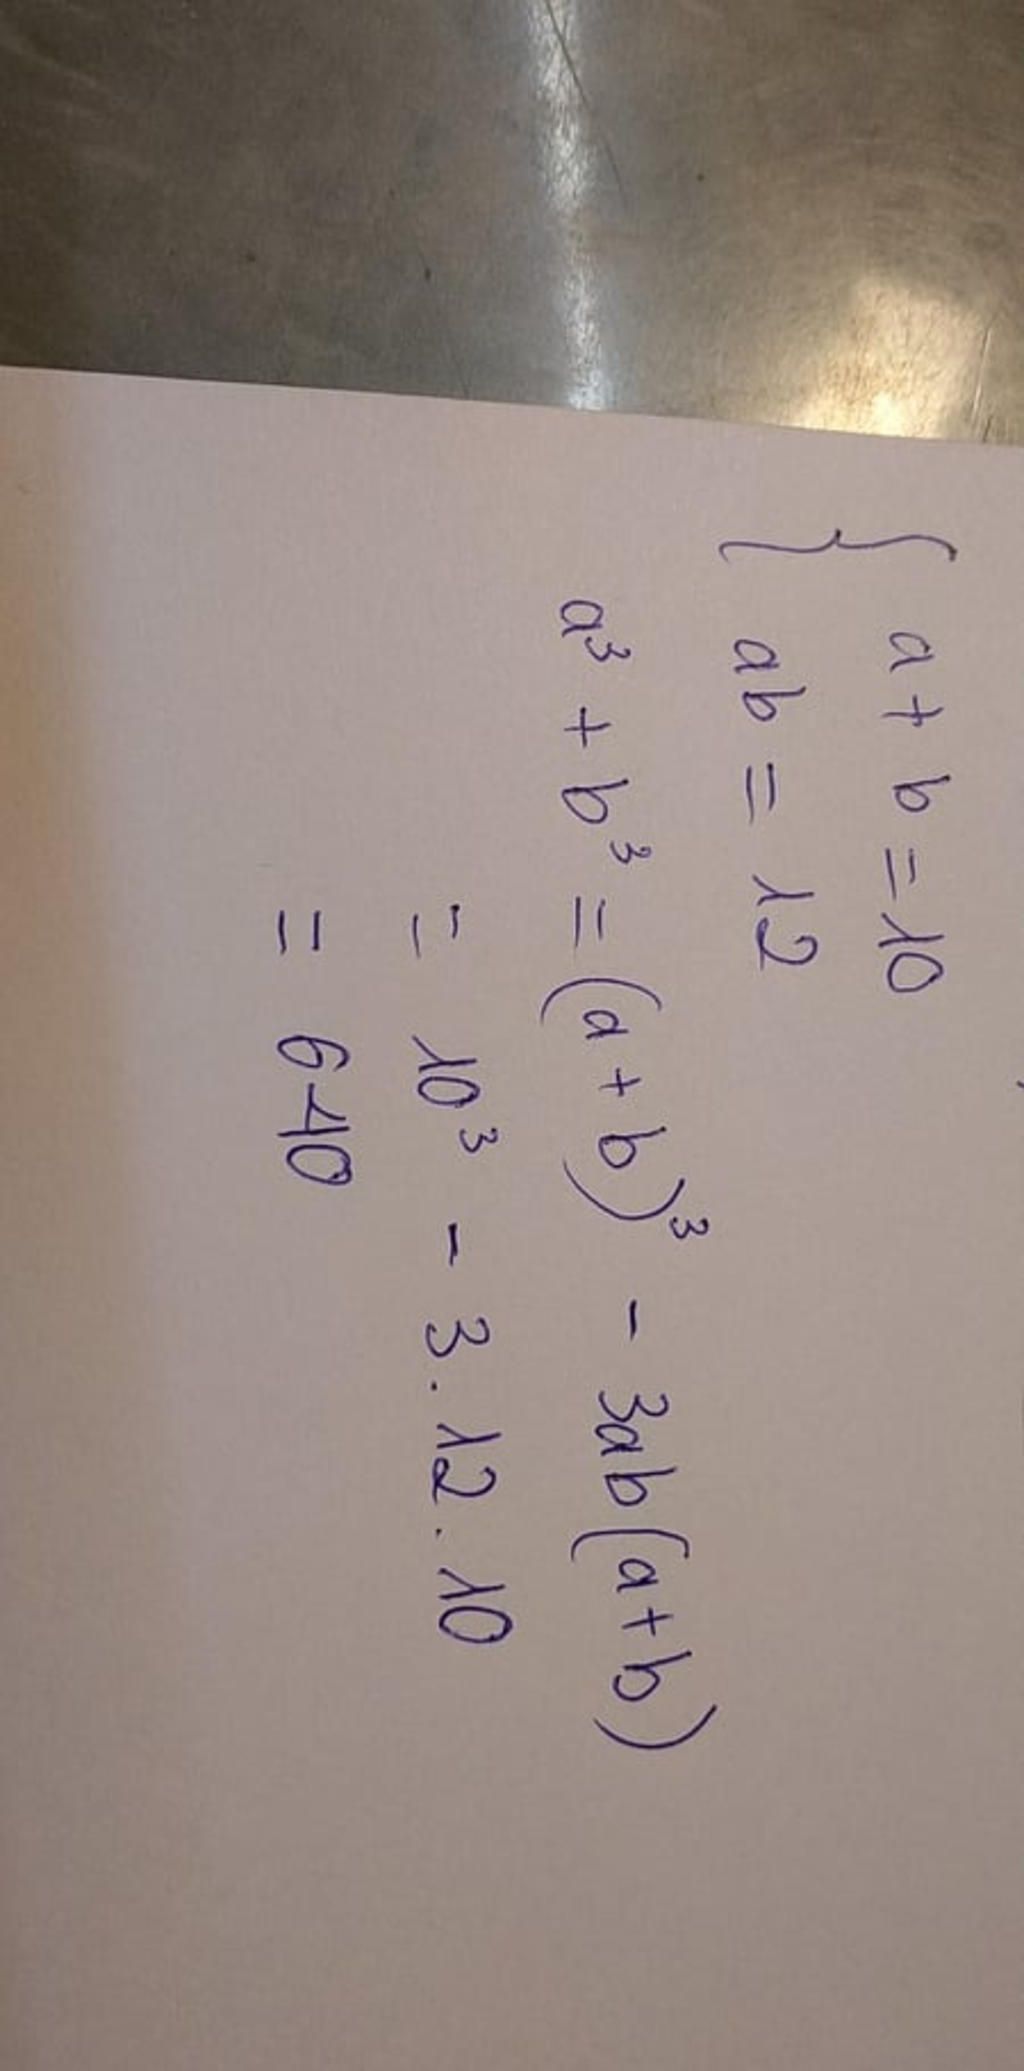 { a + b = 10
ab = 12
a³ + b³ = (a + b)³ - 3ab(a+b)
= 10³ - 3.12.10
= 640